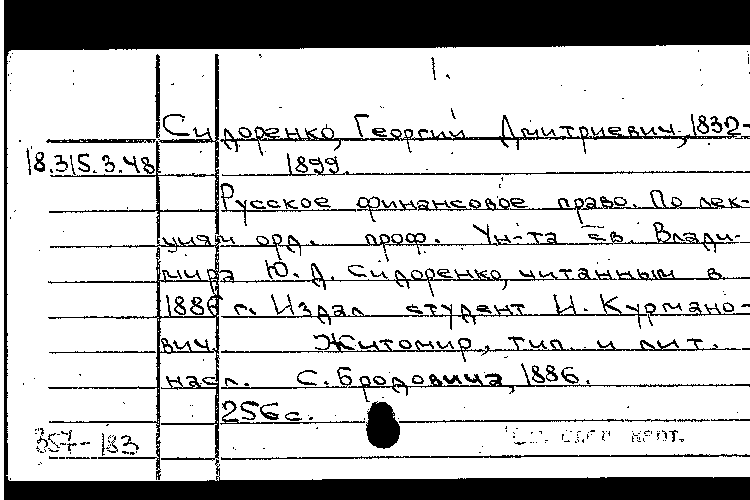 1.
Сидоренко, Георгий Дмитриевич, 1832-
18.315.3.48 1899.
Русское финансовое право. По лек-
циям орд. проф. Ун-та св. Влади-
мира Ю. Д. Сидоренко, читанным в
1886 г. Издал студент И. Курмано-
вич. Житомир, тип. и лит.
насл. С. Бродовича, 1886.
256 с.
357-183